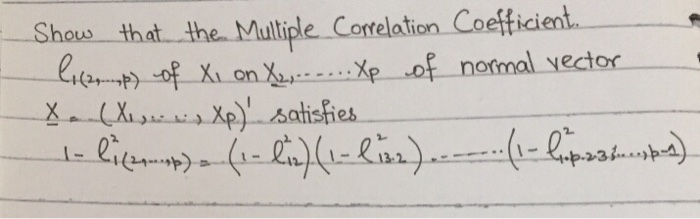 Show that the Multiple Correlation Coefficient.
ρ₁(₂,...,ₚ) of X₁ on X₂,......Xp of normal vector
X = (X₁,....., Xp)' satisfies
1 - ρ²₁(₂,...,ₚ) = (1 - ρ²₁₂)(1 - ρ²₁₃.₂)........(1 - ρ²₁.p.23,....,p-1)